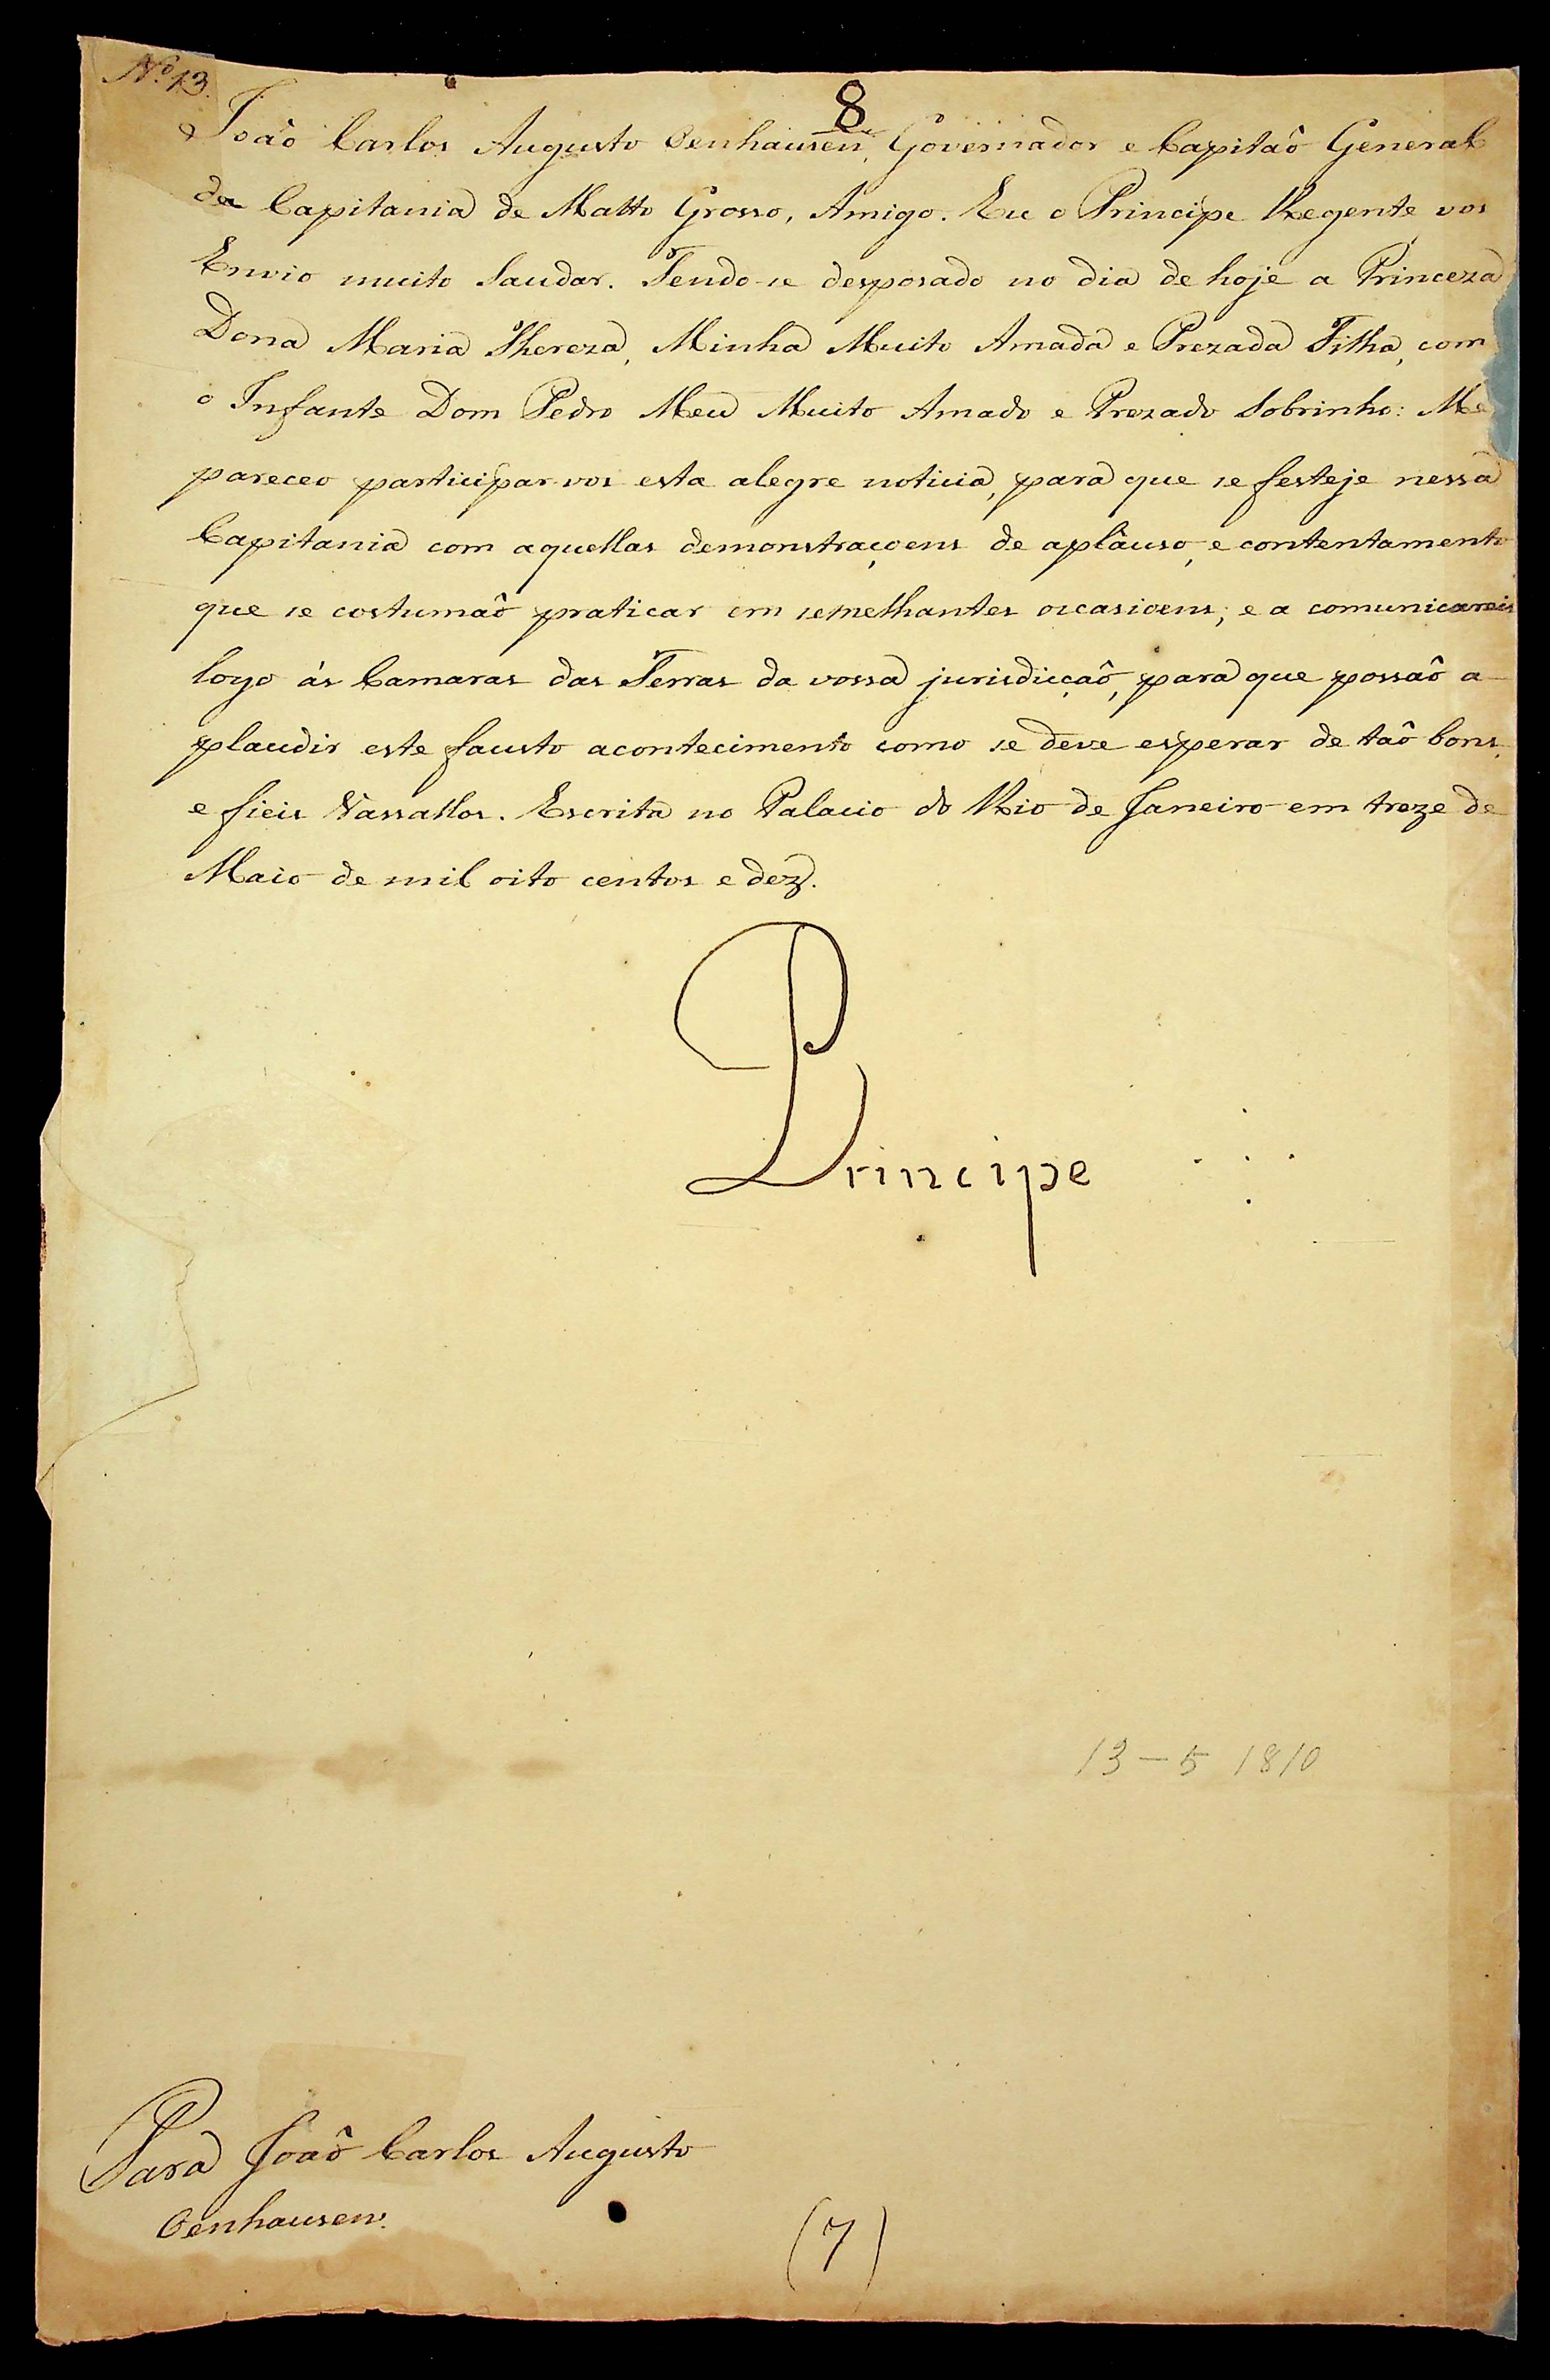 Nº 13.
8
João Carlos Augusto Oenhausen, Governador e Capitaõ General
da Capitania de Matto Grosso, Amigo. Eu o Principe Regente vos
Envio muito Saudar. Tendo-se desposado no dia de hoje a Princeza
Dona Maria Thereza, Minha Muito Amada e Prezada Filha, com
o Infante Dom Pedro Meu Muito Amado e Prezado Sobrinho: Me
pareceo participar-vos esta alegre noticia, para que se festeje nessa
Capitania com aquellas demonstraçoens de aplauso, e contentamento
que se costumaõ praticar em semelhantes occasioens; e a comunicareis
logo ás Camaras das Terras da vossa jurisdicçaõ, para que possaõ a-
plaudir este fausto acontecimento como se deve esperar de taõ bons,
e fieis Vassallos. Escrita no Palacio do Rio de Janeiro em treze de
Maio de mil oito centos e dez.
Principe
13-5 1810
Para Joaõ Carlos Augusto
Oenhausen.
(7)